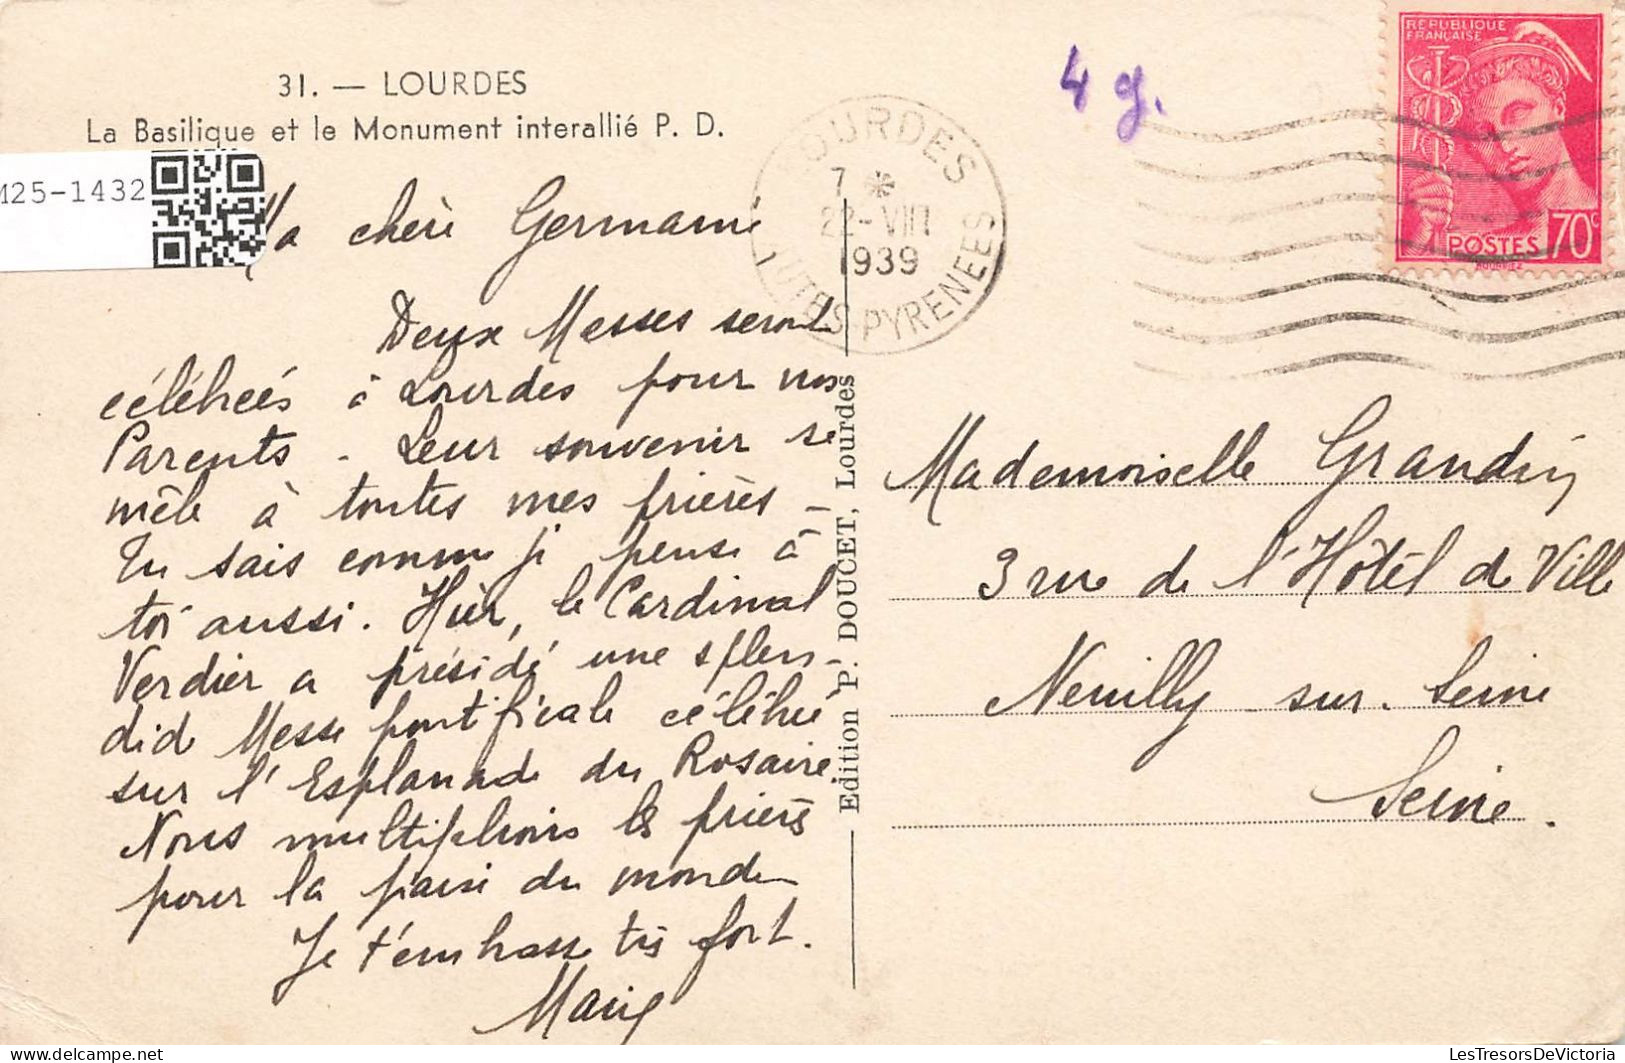 31. — LOURDES
La Basilique et le Monument interallié P. D.
M25-1432
Ma chère Germaine
Deux Messes seront
célébrées à Lourdes pour nos
Parents - Leur souvenir se
mêle à toutes mes prières -
Tu sais comme je pense à
toi aussi. Hier, le Cardinal
Verdier a présidé une splen-
dide Messe pontificale célébrée
sur l'Esplanade du Rosaire
Nous multiplions les prières
pour la paix du monde
Je t'embrasse très fort.
Marie
LOURDES
7 *
22-VIII
1939
HAUTES-PYRENEES
Edition P. DOUCET, Lourdes
4 g.
REPUBLIQUE
FRANÇAISE
POSTES 70c
Mademoiselle Grandin
3 rue de l'Hôtel de Ville
Neuilly sur Seine
Seine.
www.LesTresorsDeVictoria.com